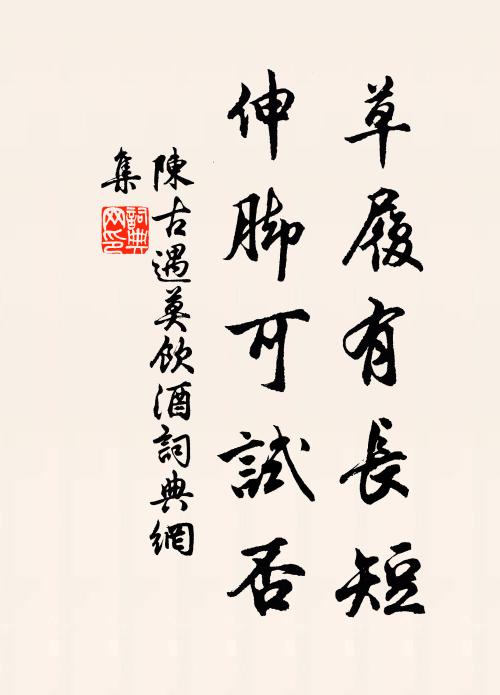 草履有長短
伸脚可試否
陳古遇莫飲酒詞典網
集
詞典
网印